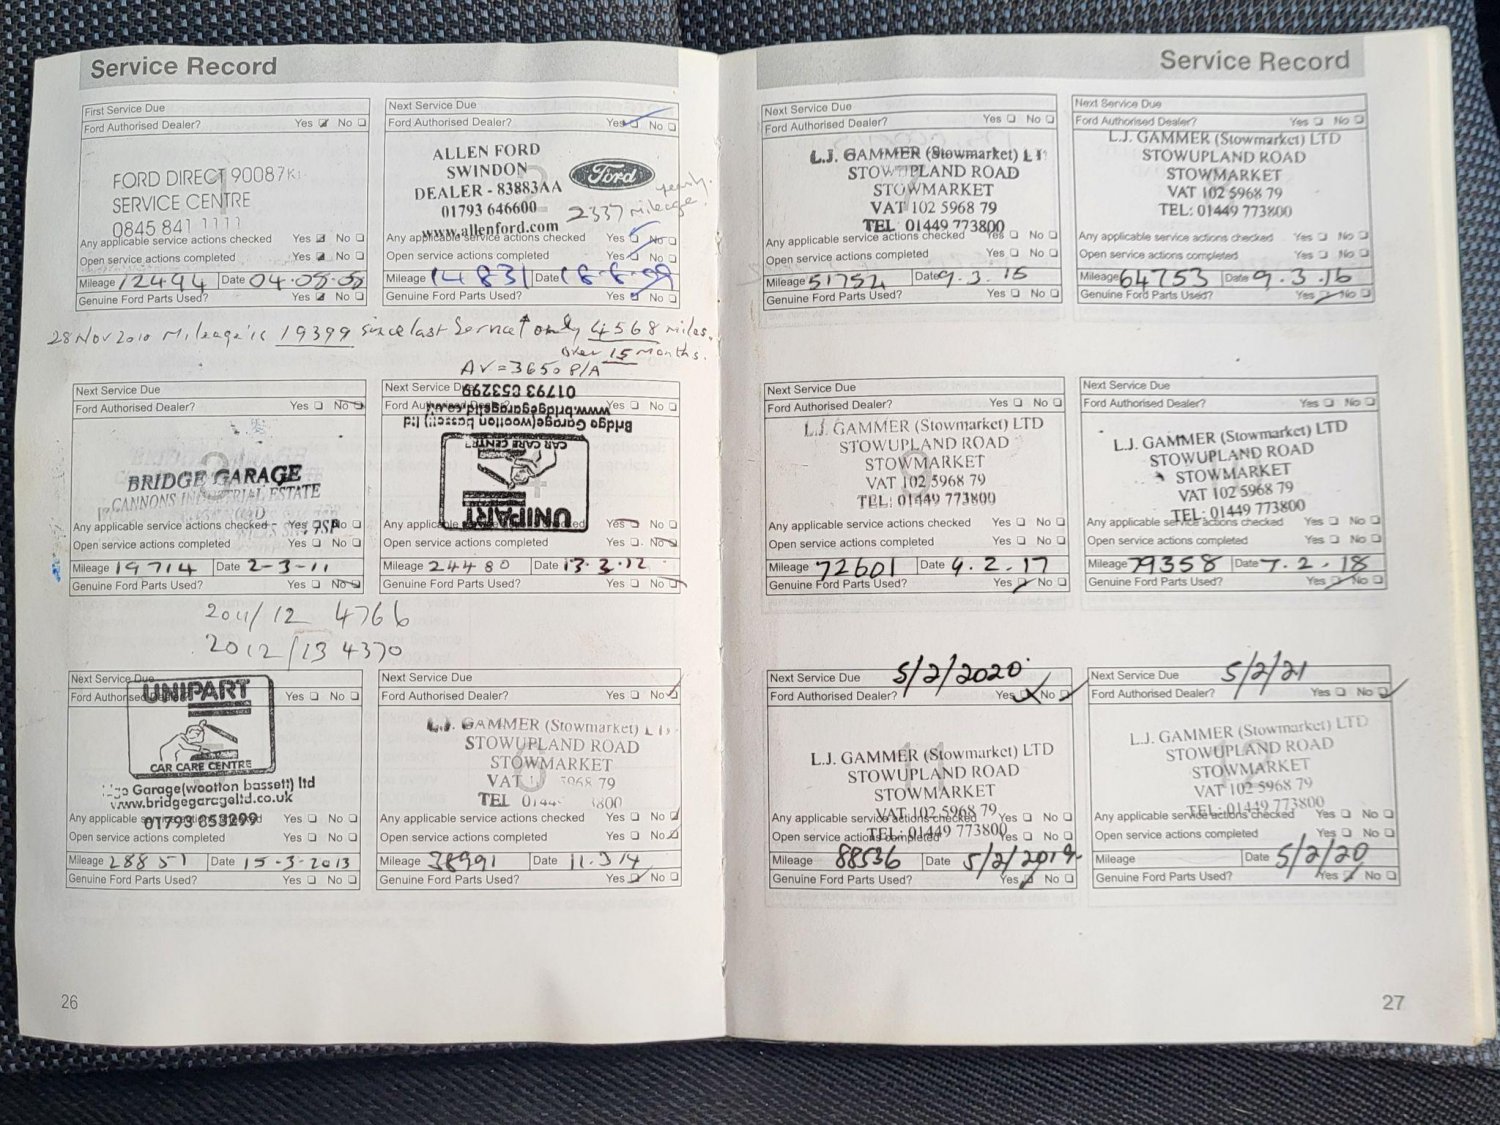 Service Record
First Service Due
Ford Authorised Dealer? Yes No
FORD DIRECT 90087
SERVICE CENTRE
0845 841 1111
Any applicable service actions checked Yes No
Open service actions completed Yes No
Mileage 12494 Date 04.08.08
Genuine Ford Parts Used? Yes No
Next Service Due
Ford Authorised Dealer? Yes No
ALLEN FORD
SWINDON
DEALER - 83883AA
01793 646600
www.allenford.com
Ford
yearly.
2337 mileage
Any applicable service actions checked Yes No
Open service actions completed Yes No
Mileage 14831 Date 18-8-09
Genuine Ford Parts Used? Yes No
28 Nov 2010 Mileage is 19399 since last Service only 4568 miles.
over 15 months.
AV = 3650 P/A
Next Service Due
Ford Authorised Dealer? Yes No
BRIDGE GARAGE
CANNONS INDUSTRIAL ESTATE
Any applicable service actions checked Yes No
Open service actions completed Yes No
Mileage 19714 Date 2-3-11
Genuine Ford Parts Used? Yes No
Next Service Due
Ford Authorised Dealer? Yes No
UNIPART
CAR CARE CENTRE
Bridge Garage(wootton bassett) ltd
www.bridgegarageltd.co.uk
01793 853299
Any applicable service actions checked Yes No
Open service actions completed Yes No
Mileage 24480 Date 13.3.12
Genuine Ford Parts Used? Yes No
2011/12 4766
2012/13 4370
Next Service Due
Ford Authorised Dealer? Yes No
UNIPART
CAR CARE CENTRE
Garage(wootton bassett) ltd
www.bridgegarageltd.co.uk
01793 853299
Any applicable service actions checked Yes No
Open service actions completed Yes No
Mileage 28851 Date 15-3-2013
Genuine Ford Parts Used? Yes No
Next Service Due
Ford Authorised Dealer? Yes No
L.J. GAMMER (Stowmarket) LTD
STOWUPLAND ROAD
STOWMARKET
VAT 5968 79
TEL 0144 3800
Any applicable service actions checked Yes No
Open service actions completed Yes No
Mileage 38991 Date 11.3.14
Genuine Ford Parts Used? Yes No
26
Service Record
Next Service Due
Ford Authorised Dealer? Yes No
L.J. GAMMER (Stowmarket)
STOWUPLAND ROAD
STOWMARKET
VAT 102 5968 79
TEL 01449 773800
Any applicable service actions checked Yes No
Open service actions completed Yes No
Mileage 51752 Date 9.3.15
Genuine Ford Parts Used? Yes No
Next Service Due
Ford Authorised Dealer? Yes No
L.J. GAMMER (Stowmarket) LTD
STOWUPLAND ROAD
STOWMARKET
VAT 102 5968 79
TEL: 01449 773800
Any applicable service actions checked Yes No
Open service actions completed Yes No
Mileage 64753 Date 9.3.16
Genuine Ford Parts Used? Yes No
Next Service Due
Ford Authorised Dealer? Yes No
L.J. GAMMER (Stowmarket) LTD
STOWUPLAND ROAD
STOWMARKET
VAT 102 5968 79
TEL: 01449 773800
Any applicable service actions checked Yes No
Open service actions completed Yes No
Mileage 72601 Date 9.2.17
Genuine Ford Parts Used? Yes No
Next Service Due
Ford Authorised Dealer? Yes No
L.J. GAMMER (Stowmarket) LTD
STOWUPLAND ROAD
STOWMARKET
VAT 102 5968 79
TEL: 01449 773800
Any applicable service actions checked Yes No
Open service actions completed Yes No
Mileage 79358 Date 7.2.18
Genuine Ford Parts Used? Yes No
Next Service Due 5/2/2020
Ford Authorised Dealer? Yes No
L.J. GAMMER (Stowmarket) LTD
STOWUPLAND ROAD
STOWMARKET
VAT 102 5968 79
TEL: 01449 773800
Any applicable service actions checked Yes No
Open service actions completed Yes No
Mileage 88536 Date 5/2/2019
Genuine Ford Parts Used? Yes No
Next Service Due 5/2/21
Ford Authorised Dealer? Yes No
L.J. GAMMER (Stowmarket) LTD
STOWUPLAND ROAD
STOWMARKET
VAT 102 5968 79
TEL: 01449 773800
Any applicable service actions checked Yes No
Open service actions completed Yes No
Mileage Date 5/2/20
Genuine Ford Parts Used? Yes No
27